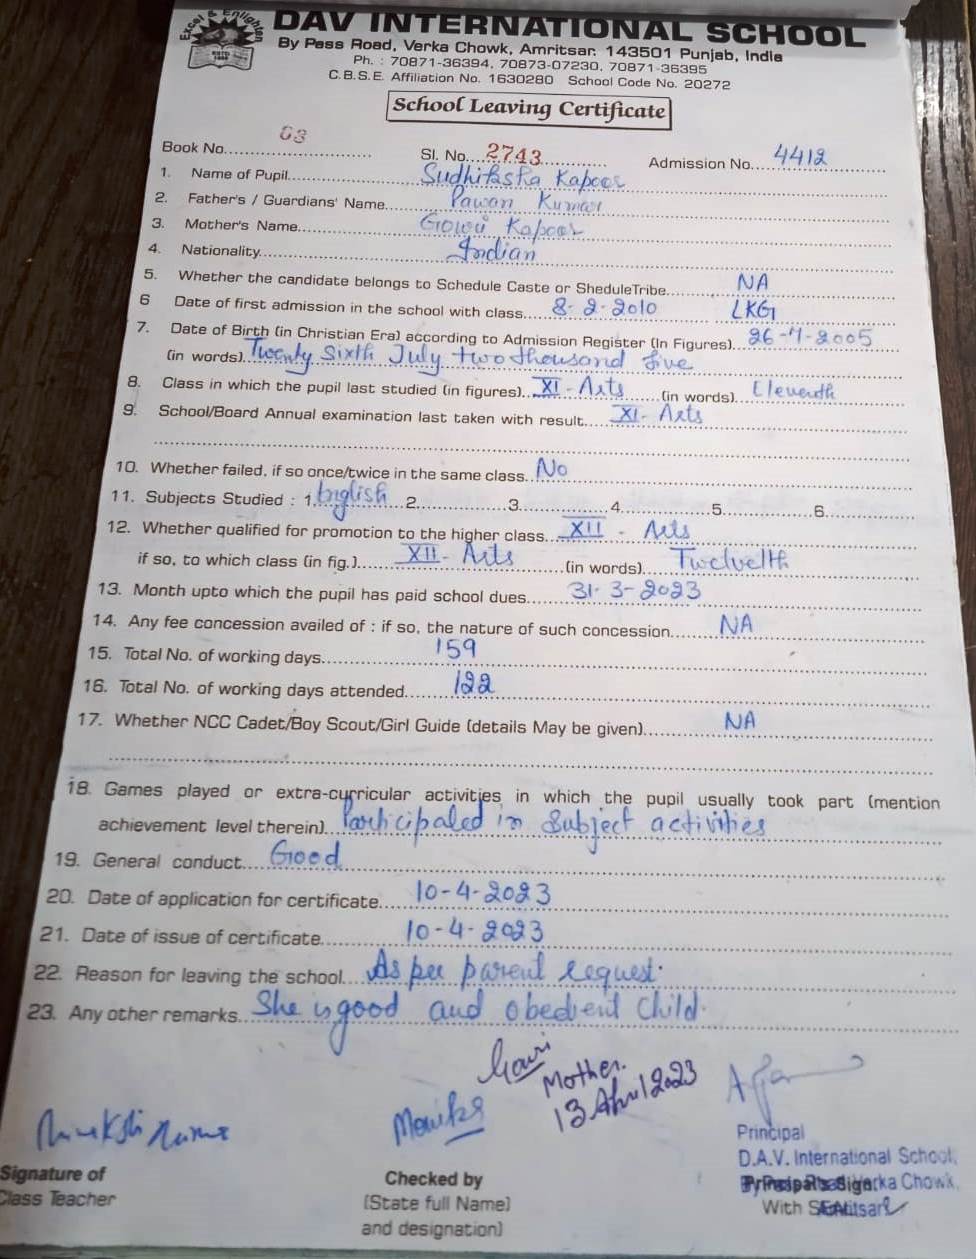 Excel & Enlighten
DAV INTERNATIONAL SCHOOL
By Pass Road, Verka Chowk, Amritsar. 143501 Punjab, India
Ph. : 70871-36394, 70873-07230, 70871-36395
C.B.S.E. Affiliation No. 1630280 School Code No. 20272
School Leaving Certificate
Book No. 03 Sl. No. 2743 Admission No. 4412
1. Name of Pupil Kapoor
2. Father's / Guardians' Name Pawan Kumar
3. Mother's Name Gowri Kapoor
4. Nationality Indian
5. Whether the candidate belongs to Schedule Caste or SheduleTribe NA
6 Date of first admission in the school with class 8-2-2010 LKG
7. Date of Birth (in Christian Era) according to Admission Register (In Figures) 26-7-2005
(in words) Twenty Sixth July two thousand five
8. Class in which the pupil last studied (in figures) XI - Arts (in words) Eleventh
9. School/Board Annual examination last taken with result XI - Arts
10. Whether failed, if so once/twice in the same class No
11. Subjects Studied : 1. English 2. 3. 4. 5. 6.
12. Whether qualified for promotion to the higher class XII - Arts
if so, to which class (in fig.) XII - Arts (in words) Twelvelth
13. Month upto which the pupil has paid school dues 31-3-2023
14. Any fee concession availed of : if so, the nature of such concession NA
15. Total No. of working days 159
16. Total No. of working days attended 122
17. Whether NCC Cadet/Boy Scout/Girl Guide (details May be given) NA
18. Games played or extra-curricular activities in which the pupil usually took part (mention
achievement level therein) Participated in Subject activities
19. General conduct Good
20. Date of application for certificate 10-4-2023
21. Date of issue of certificate 10-4-2023
22. Reason for leaving the school As per parent request.
23. Any other remarks She is good and obedient Child.
Gauri
Mother.
13 April 2023
Principal
D.A.V. International School,
Signature of
Class Teacher
Checked by
(State full Name)
and designation)
Principal's Sign
With SEAL